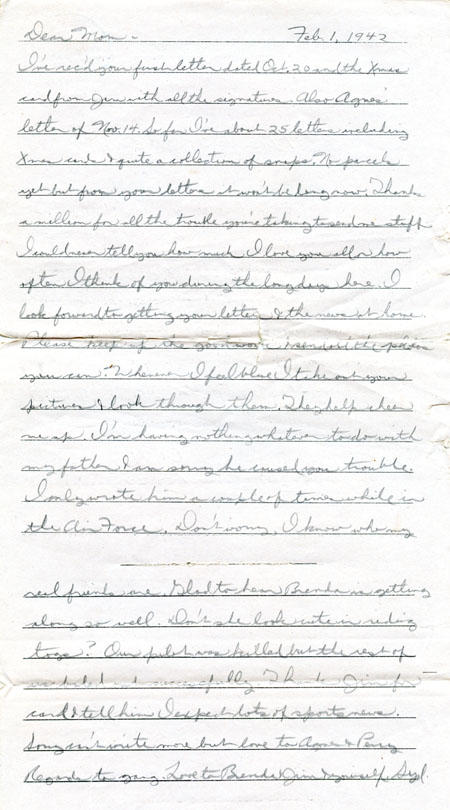 Dear Mom - Feb. 1, 1942
I've rec'd your first letter dated Oct. 20 and the Xmas
card from Jim with all the signatures. Also Agnes'
letter of Nov. 14. So far I've about 25 letters including
Xmas cards & quite a collection of snaps. No parcels
yet but from your letters it won't be long now. Thanks
a million for all the trouble you're taking to send me stuff
I could never tell you how much I love you all or how
often I think of you during the long days here. I
look forward to getting your letters & the news at home.
Please keep up the good work & send all the
you can. Whenever I feel blue I take out your
pictures & look through them. They help cheer
me up. I'm having nothing whatever to do with
my father. I am sorry he caused you trouble.
I only wrote him a couple of times while in
the Air Force. Don't worry, I know who my
real friends are. Glad to hear Brenda is getting
along so well. Don't she look cute in riding
togs? Our pilot was killed but the rest of
us bailed out successfully. Thank Jim for
card & tell him I expect lots of sports news.
Sorry can't write more but love to Agnes & Percy
Regards to gang. Love to Brenda & Jim & yourself. Syd.